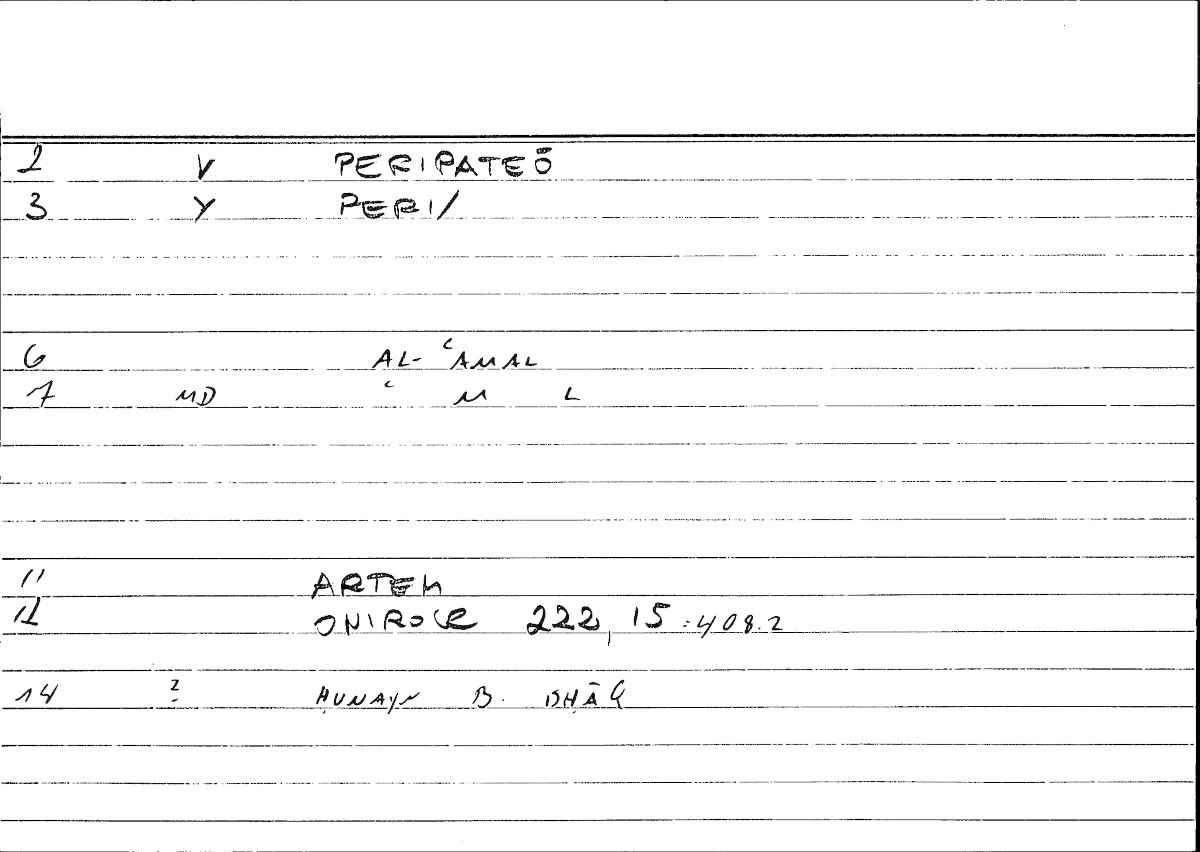 2 V PERIPATEŌ
3 Y PERI/
6 AL-ʿAMAL
7 MD ʿ M L
11 ARTEM
12 ONIROCR 222, 15:408.2
14 ? ḤUNAYN B. ISḤĀQ